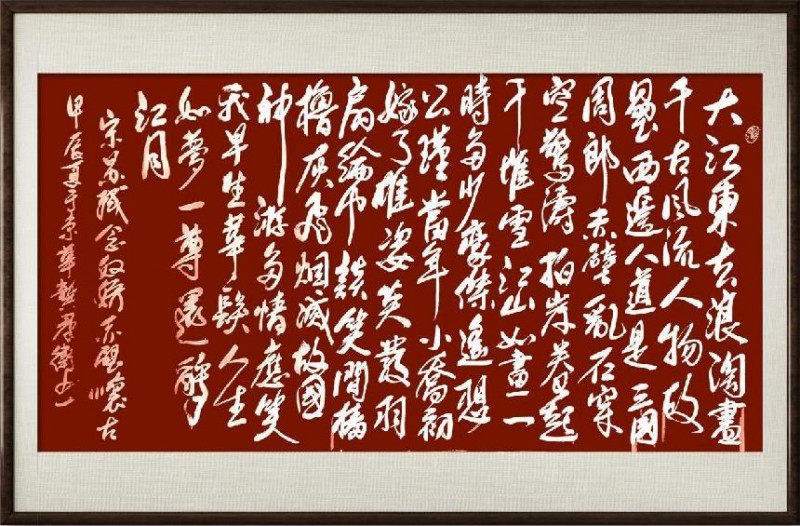 大江東去浪淘盡
千古風流人物故
壘西邊人道是三國
周郎赤壁亂石穿
空驚濤拍岸卷起
千堆雪江山如畫一
時多少豪傑遙想
公瑾當年小喬初
嫁了雄姿英發羽
扇綸巾談笑間檣
櫓灰飛烟滅故國
神游多情應笑
我早生華髮人生
如夢一尊還酹
江月
宋蘇軾念奴嬌赤壁懷古
甲辰夏于京華书